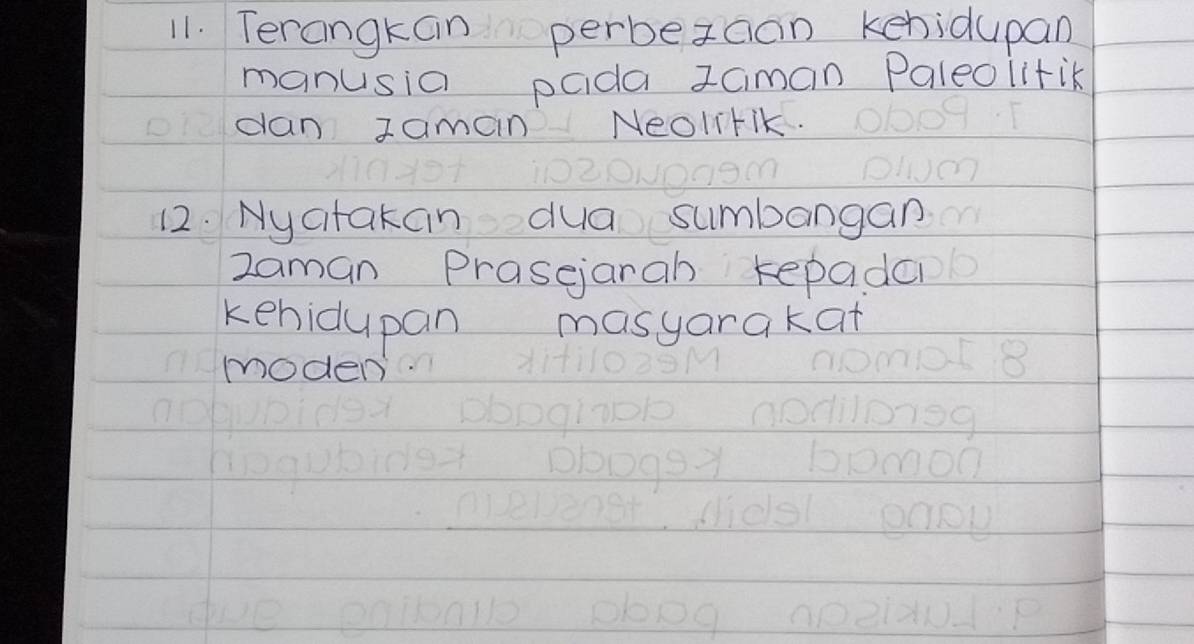 11. Terangkan perbezaan kehidupan
manusia pada zaman Paleolitik
dan zaman Neolitik.
12. Nyatakan dua sumbangan
zaman Prasejarah kepada
kehidupan masyarakat
moden.